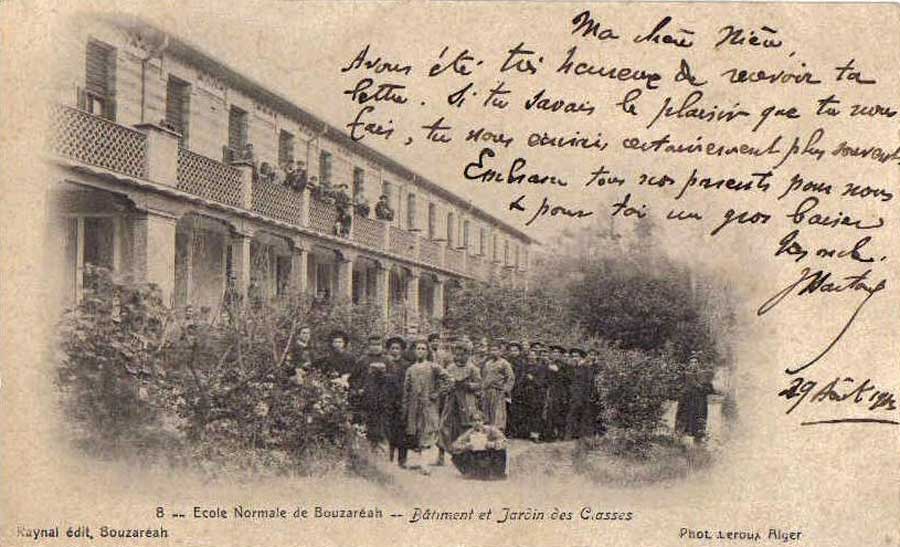 Ma chère Nièce,
Avons été très heureux de recevoir ta
lettre. Si tu savais le plaisir que tu nous
fais, tu nous écrirais certainement plus souvent.
Embrasse tous nos parents pour nous
& pour toi un gros baiser
29 Août
8 -- Ecole Normale de Bouzaréah -- Bâtiment et Jardin des Classes
Raynal édit, Bouzaréah
Phot. Leroux Alger